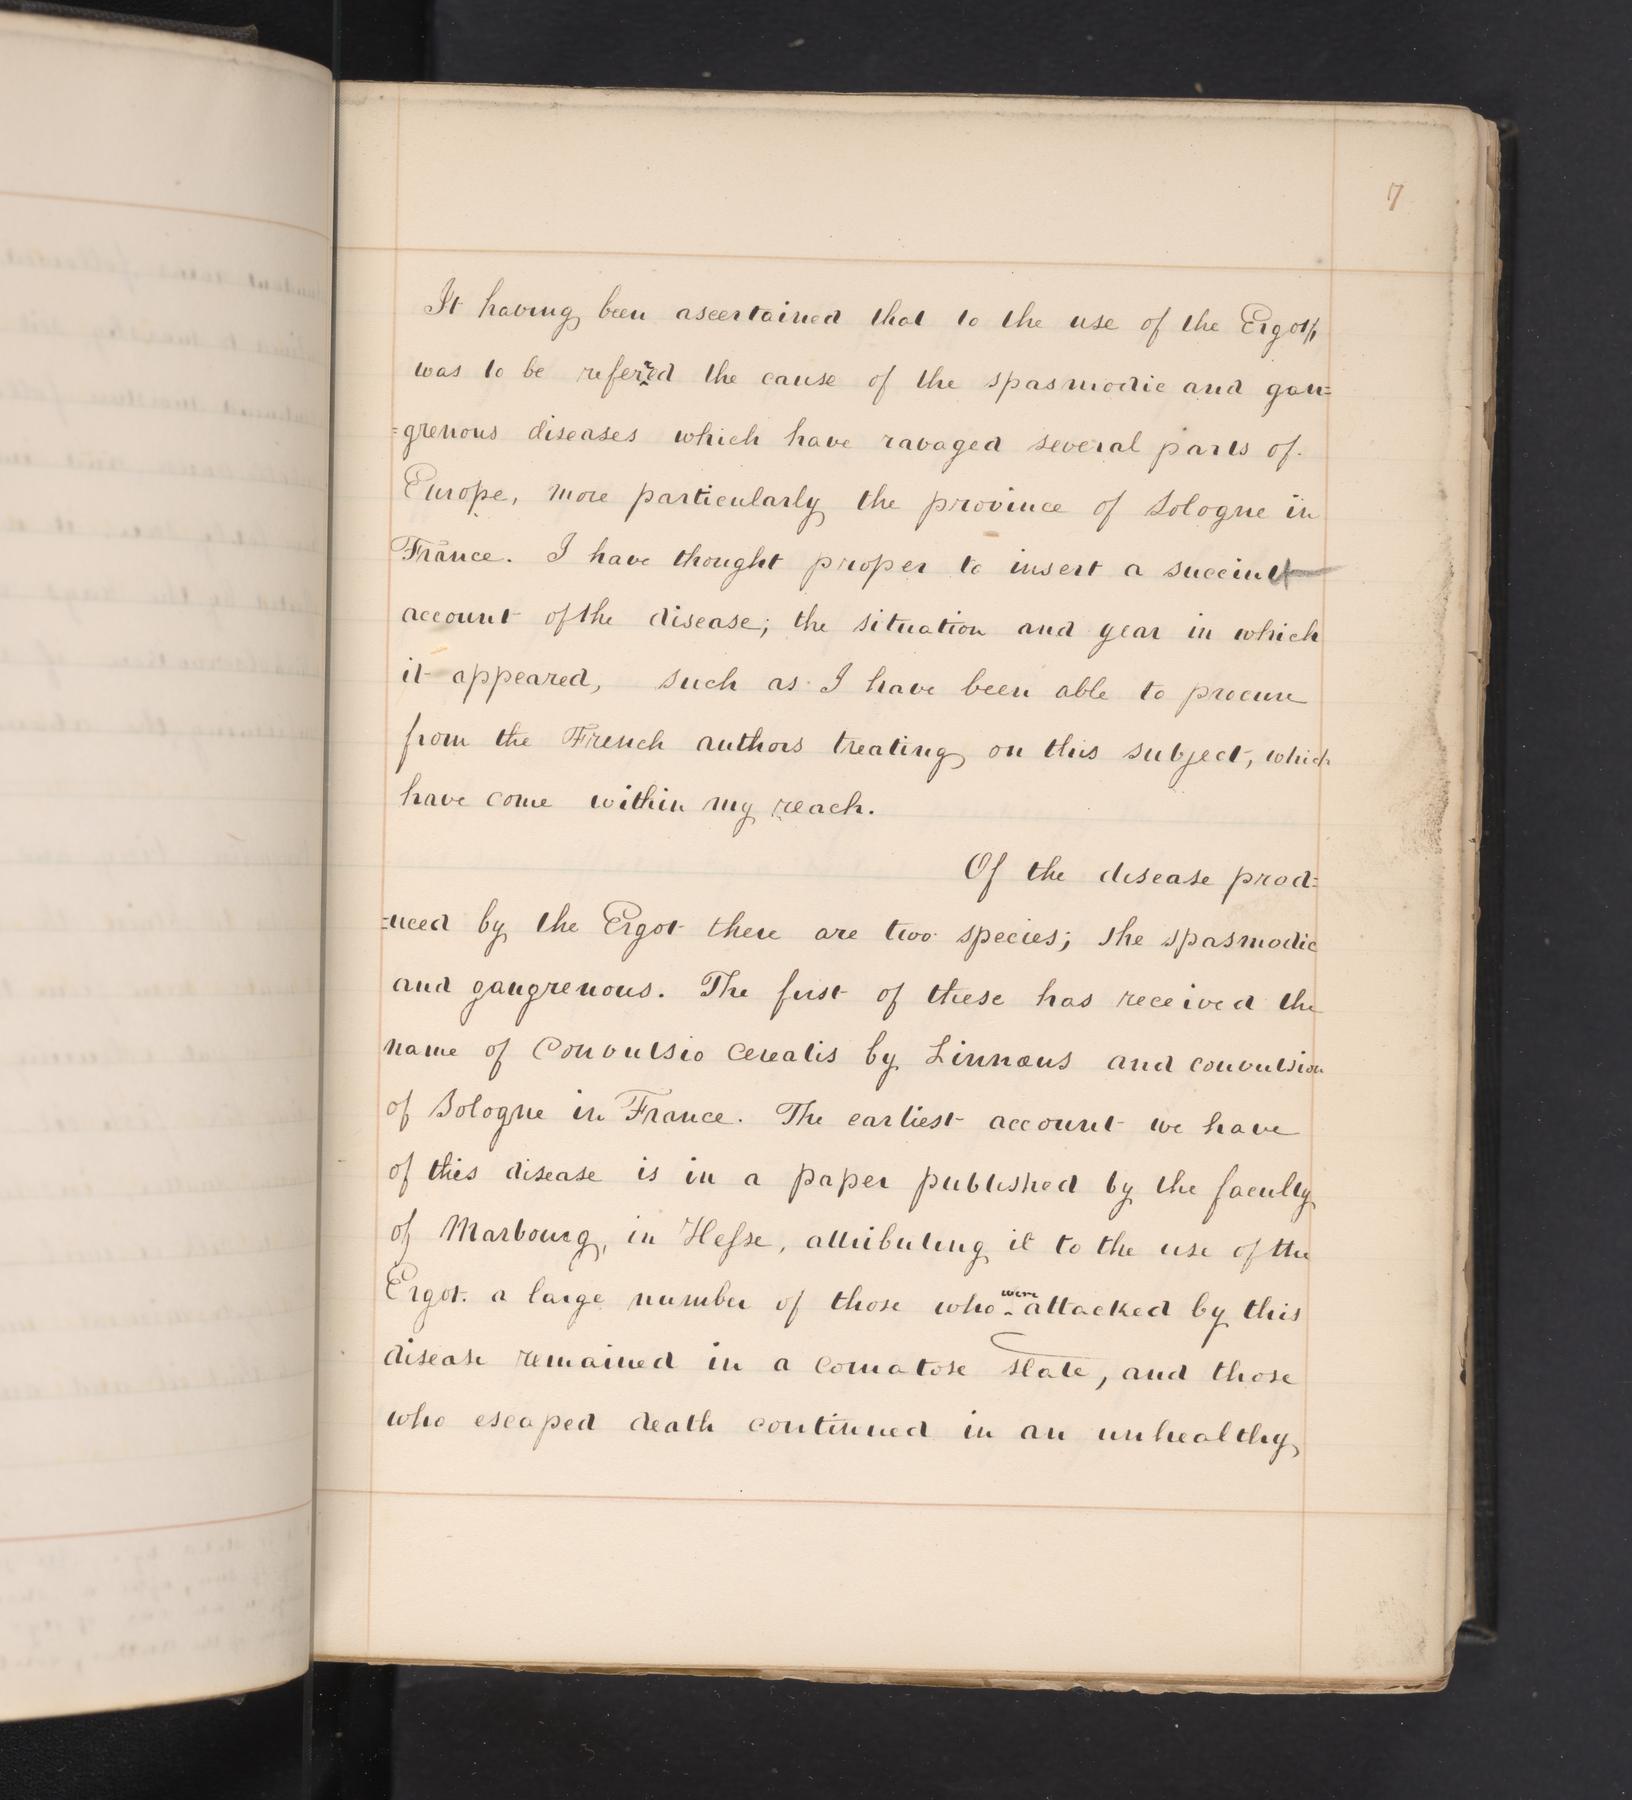 7
It having been ascertained that to the use of the Ergot
was to be referred the cause of the spasmodic and gan=
=grenous diseases which have ravaged several parts of
Europe, more particularly the province of Sologne in
France. I have thought proper to insert a succinct
account of the disease; the situation and year in which
it appeared, such as I have been able to procure
from the French authors treating on this subject, which
have come within my reach.
Of the disease prod=
=uced by the Ergot there are two species; the spasmodic
and gangrenous. The first of these has received the
name of Convulsio Cerealis by Linnæus and convulsion
of Sologne in France. The earliest account we have
of this disease is in a paper published by the faculty
of Marbourg, in Hesse, attributing it to the use of the
Ergot. a large number of those who were attacked by this
disease remained in a comatose state, and those
who escaped death continued in an unhealthy